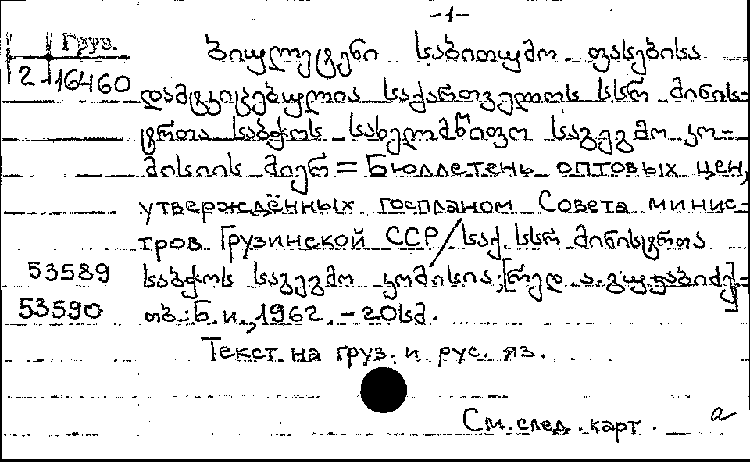 -1-
Груз. ბიულეტენი საბითუმო ფასებისა
2-16460 დამტკიცებულია საქართველოს სსრ მინის-
ტრთა საბჭოს სახელმწიფო საგეგმო კო-
მისიის მიერ = Бюллетень оптовых цен,
утверждённых госпланом Совета минис-
тров Грузинской ССР / საქ. სსრ მინისტრთა
53589 საბჭოს საგეგმო კომისია; [რედ. ა.
53590 თბ. Б. и., 1962. - 20სმ.
Текст на груз. и рус. яз.
См. след. карт. а